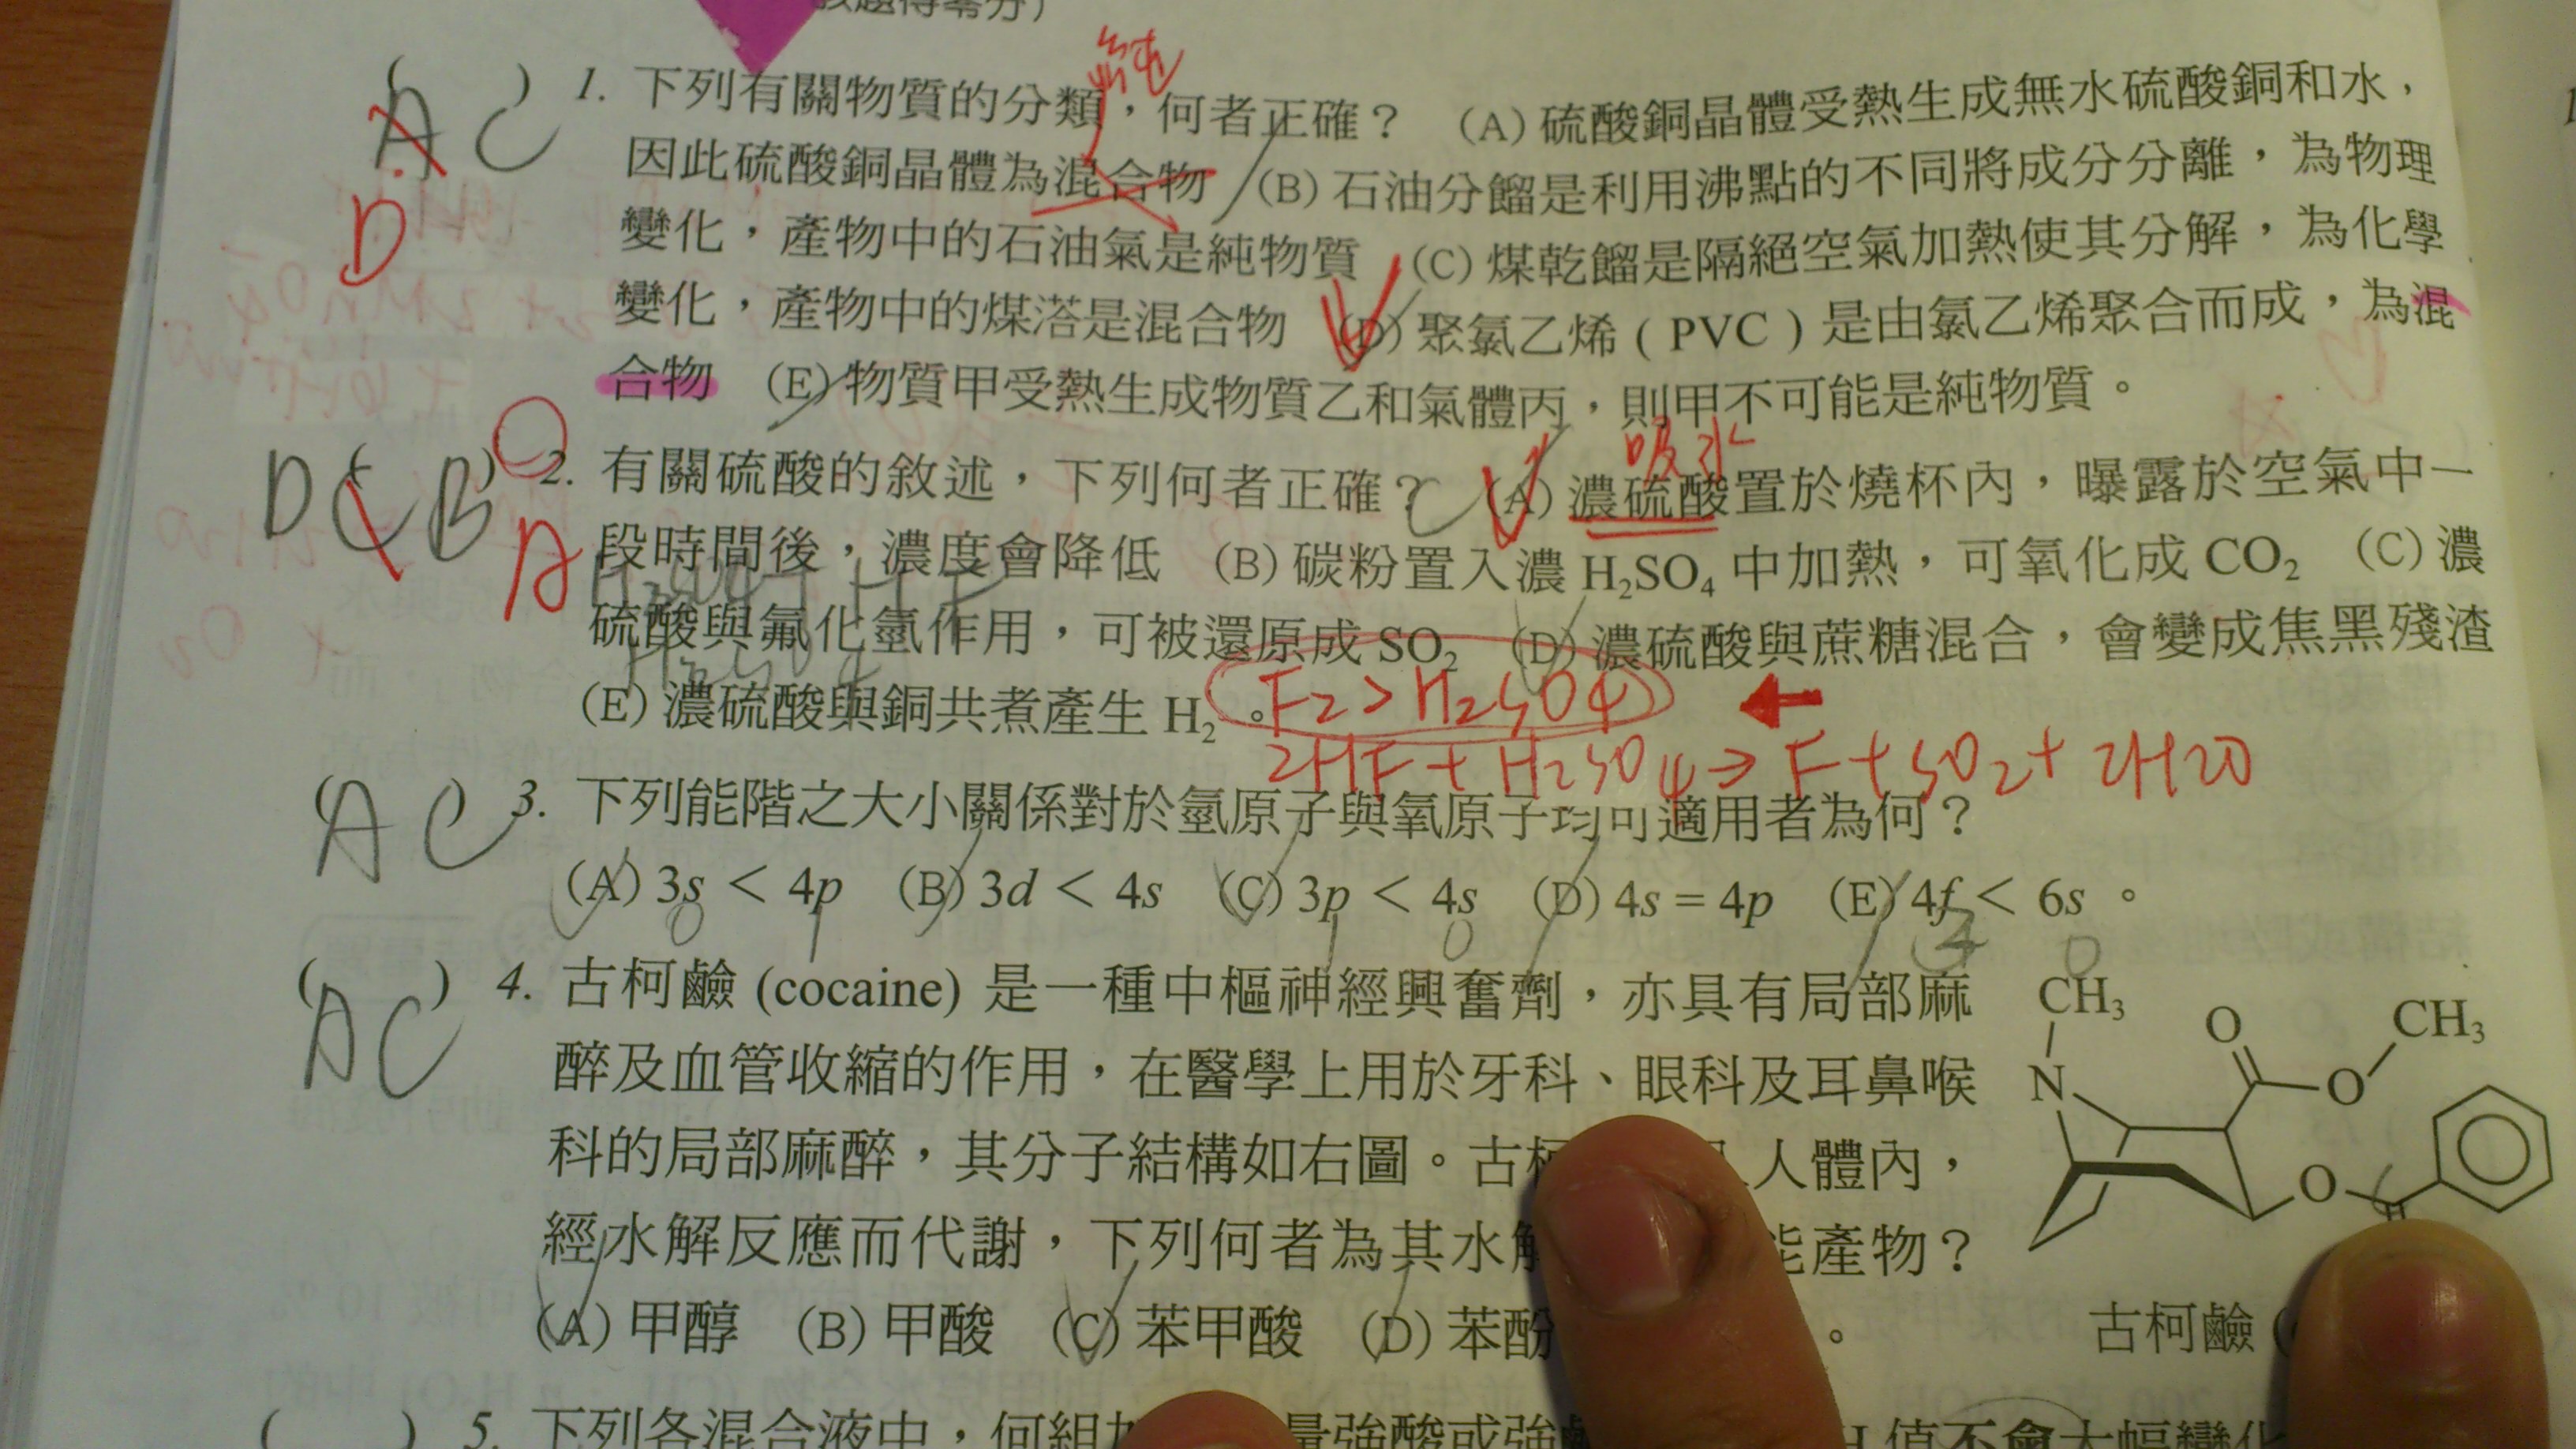 該題得零分)
純
(   ) 1. 下列有關物質的分類，何者正確？ (A)硫酸銅晶體受熱生成無水硫酸銅和水，
A C
因此硫酸銅晶體為混合物 (B)石油分餾是利用沸點的不同將成分分離，為物理
D
變化，產物中的石油氣是純物質 (C)煤乾餾是隔絕空氣加熱使其分解，為化學
變化，產物中的煤溚是混合物 (D)聚氯乙烯 ( PVC ) 是由氯乙烯聚合而成，為混
合物 (E)物質甲受熱生成物質乙和氣體丙，則甲不可能是純物質。
吸水
D C B
(   ) 2. 有關硫酸的敘述，下列何者正確？ (A)濃硫酸置於燒杯內，曝露於空氣中一
A
段時間後，濃度會降低 (B)碳粉置入濃 H₂SO₄ 中加熱，可氧化成 CO₂ (C)濃
硫酸與氟化氫作用，可被還原成 SO₂ (D)濃硫酸與蔗糖混合，會變成焦黑殘渣
(E)濃硫酸與銅共煮產生 H₂。
F2 > H2SO4
2HF + H2SO4 → F + SO2 + 2H2O
(   ) 3. 下列能階之大小關係對於氫原子與氧原子均可適用者為何？
A C
(A) 3s < 4p (B) 3d < 4s (C) 3p < 4s (D) 4s = 4p (E) 4f < 6s 。
0 1 1 0 3 0
(   ) 4. 古柯鹼 (cocaine) 是一種中樞神經興奮劑，亦具有局部麻
A C
醉及血管收縮的作用，在醫學上用於牙科、眼科及耳鼻喉
科的局部麻醉，其分子結構如右圖。古柯 人體內，
經水解反應而代謝，下列何者為其水解 產物？
(A)甲醇 (B)甲酸 (C)苯甲酸 (D)苯酚 。
CH₃
O
CH₃
N
O
O
古柯鹼 (
(   ) 5. 下列各混合液中，何組加 量強酸或強鹼 值不會大幅變化